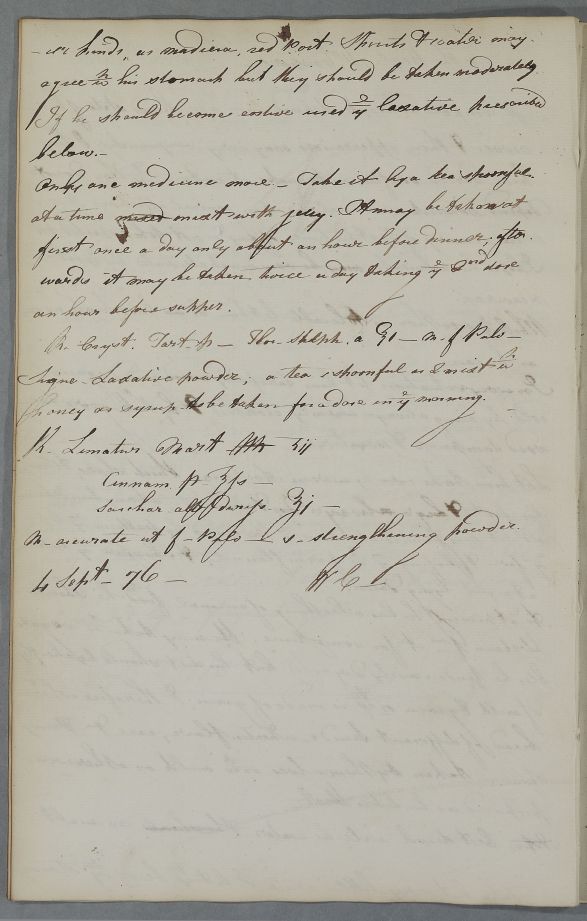 -er kinds, as madiera, red Port. Spirits & water may
agree wh his stomach but they should be taken moderately
If he should become costive used ye laxative prescribed
below.-
Only one medicine more - Take it by a tea spoonful
at a time mixed mixt with jelly. It may be taken at
first once a day only about an hour before dinner, after
wards it may be taken twice a day taking ye 2nd dose
an hour before supper.
R. Cryst. Tart. p - Flor. Sulph. a ℨi - m. f Pulv -
Signe. Laxative powder; a tea spoonful is mixt wh
honey or syrup to be taken for a dose in ye morning.
R. Limatur Mart ℨij
Cinnam. p ℨſs -
Sacchar alb ℨj -
M. accurate ut f - Pulv - s - strengthening powder.
4 Sept - 76 -